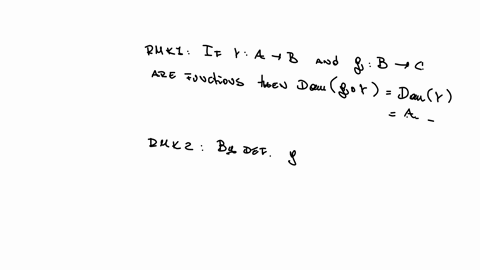 RMK1: IF f: A → B AND g: B → C
ARE FUNCTIONS THEN Dom(g∘f) = Dom(f)
= A
RMK2: By DEF. g